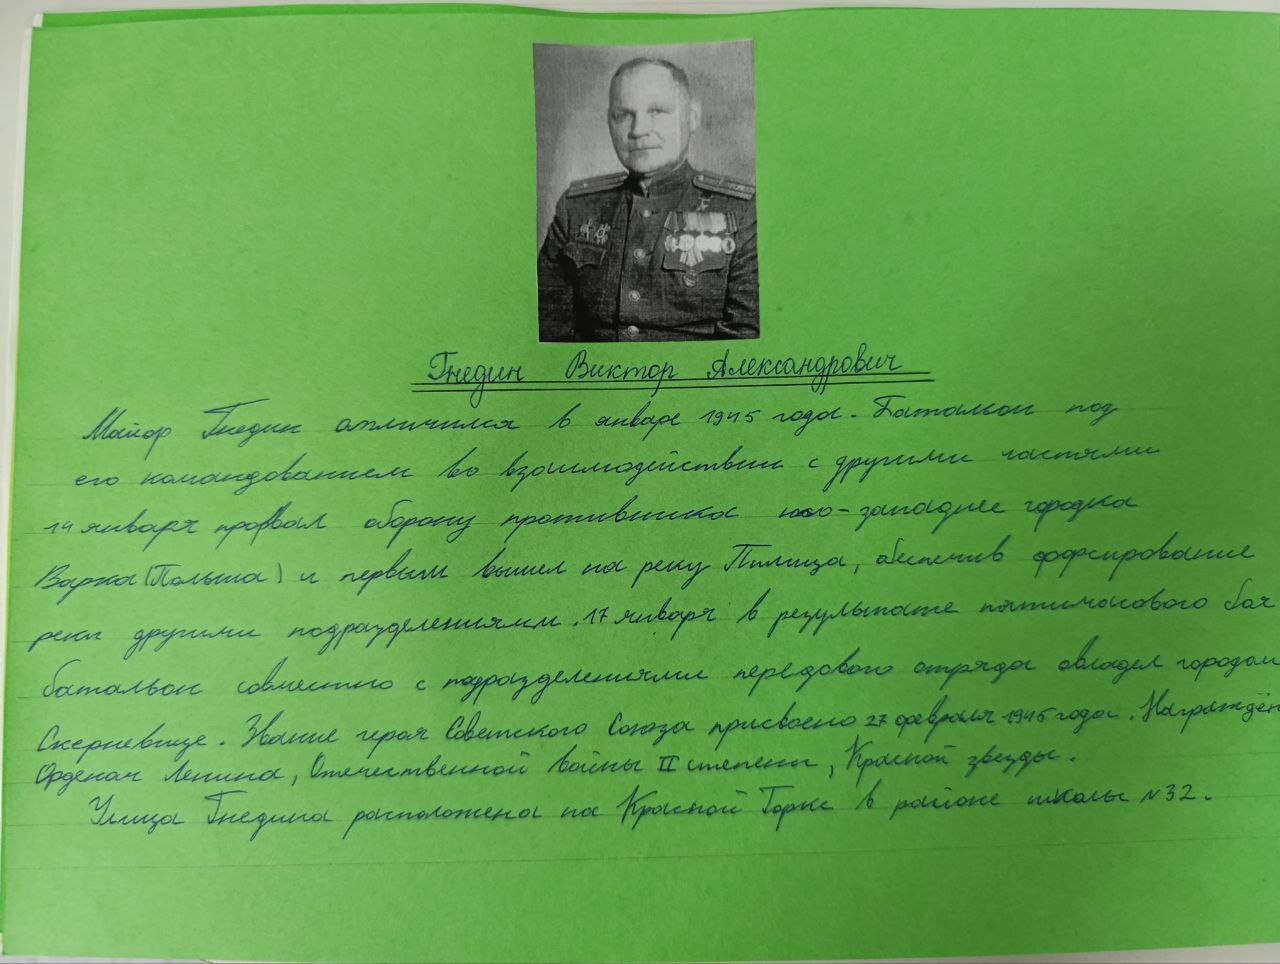 Гнедин Виктор Александрович
Майор Гнедин отличился в январе 1945 года. Батальон под
его командованием во взаимодействии с другими частями
14 января прорвал оборону противника юго-западнее городка
Варка (Польша) и первым вышел на реку Пилица, обеспечив форсирование
реки другими подразделениями. 17 января в результате пятичасового боя
батальон совместно с подразделениями передового отряда овладел городом
Скерневице. Звание героя Советского Союза присвоено 27 февраля 1945 года. Награждён
Орденом Ленина, Отечественной войны II степени, Красной звезды.
Улица Гнедина расположена на Красной Горке в районе школы №32.